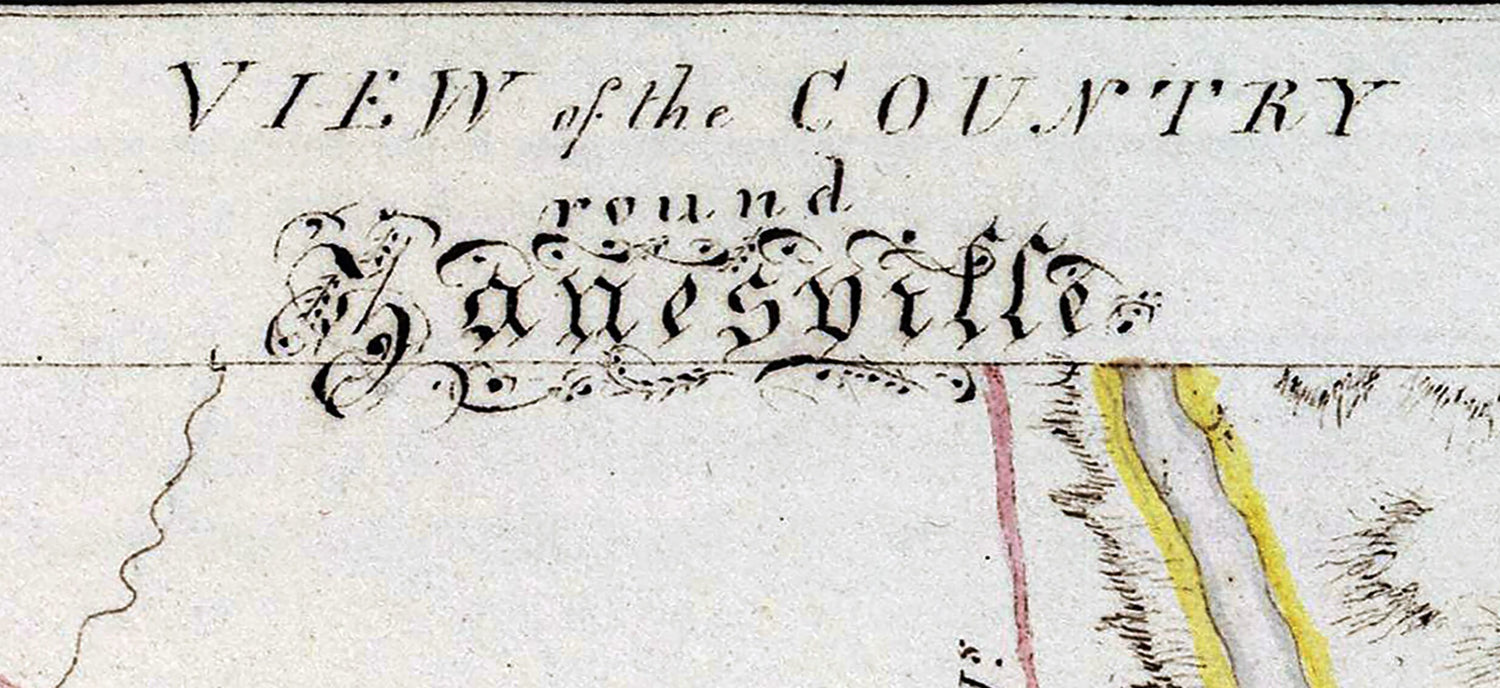 VIEW of the COUNTRY
round
Zanesville